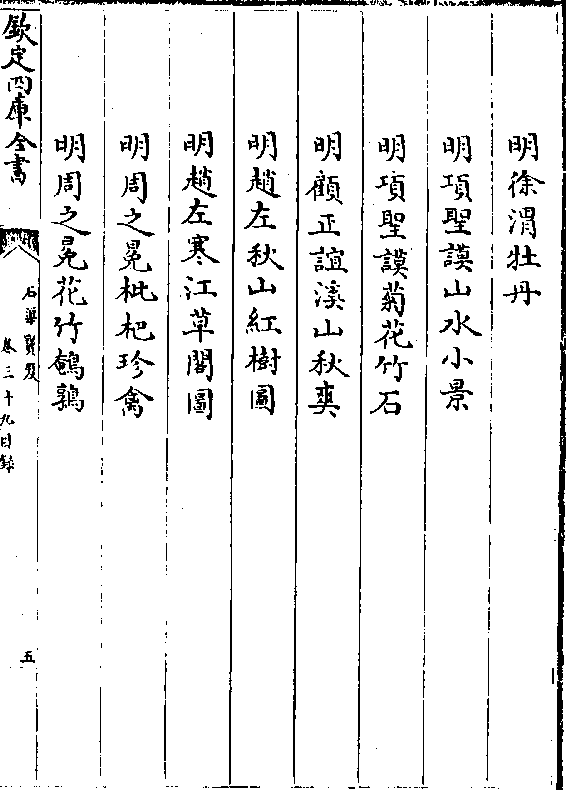 明徐渭牡丹
明項聖謨山水小景
明項聖謨菊花竹石
明顧正誼溪山秋爽
明趙左秋山紅樹圖
明趙左寒江草閣圖
明周之冕枇杷珍禽
明周之冕花竹鵪鶉
欽定四庫全書
石渠寶笈
卷三十九目錄
五